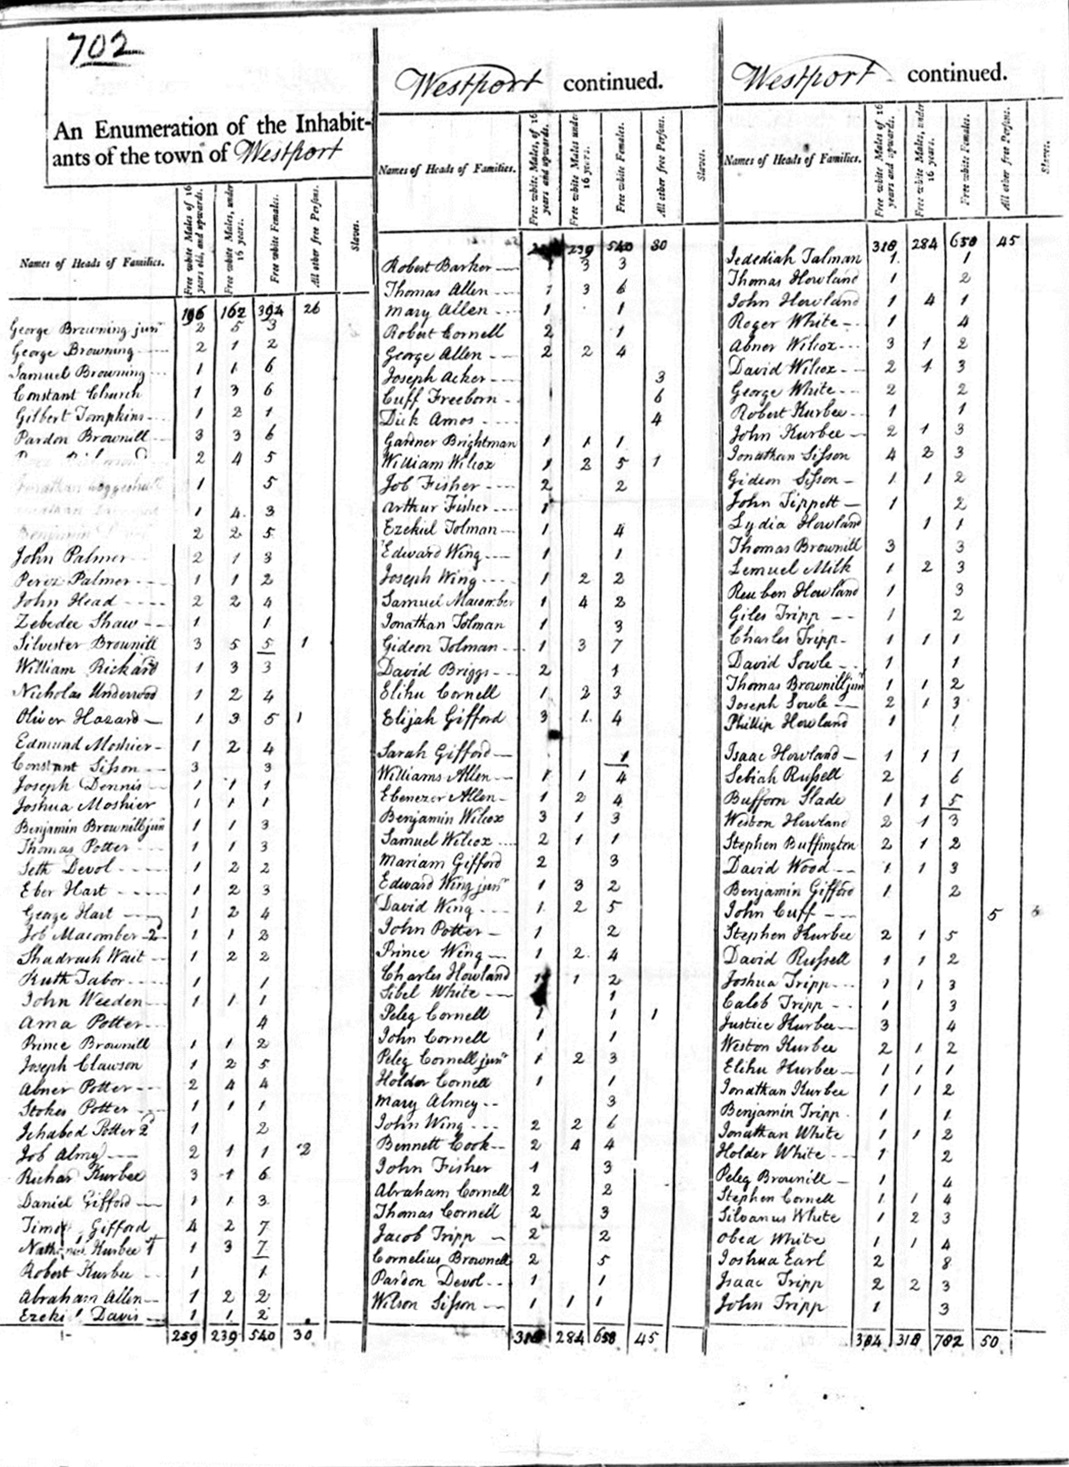 702
An Enumeration of the Inhabit-
ants of the town of Westport
Names of Heads of Families.
Free white Males of 16 years old, and upwards.
Free white Males, under 16 years.
Free white Females.
All other free Persons.
Slaves.
196 162 394 26
George Browning junr 2 5 3
George Browning 2 1 2
Samuel Browning 1 1 6
Constant Church 1 3 6
Gilbert Tompkins 1 2 1
Pardon Brownill 3 3 6
2 4 5
1 5
1 4 3
Benjamin 2 2 5
John Palmer 2 1 3
Perez Palmer 1 1 2
John Head 2 2 4
Zebedee Shaw 1 1
Silvester Brownill 3 5 5 1
William Rickard 1 3 3
Nicholas Underwood 1 2 4
Oliver Hazard 1 3 5 1
Edmund Moshier 1 2 4
Constant Sisson 3 3
Joseph Dennis 1 1 1
Joshua Moshier 1 1 1
Benjamin Brownill jun 1 1 3
Thomas Potter 1 1 3
Seth Devol 1 2 2
Eber Hart 1 2 3
George Hart 1 2 4
Job Macomber 2d 1 1 3
Shadrach Wait 1 2 2
Ruth Tabor 1 1
John Weeden 1 1 1
Ama Potter 4
Prince Brownill 1 1 2
Joseph Clawson 1 2 5
Abner Potter 2 4 4
Stokes Potter 1 1 1
Ichabod Potter 2d 1 2
Job Almy 2 1 1 2
Richard Kurbee 3 1 6
Daniel Gifford 1 1 3
Gifford 4 2 7
Kurbee 1 3 7
Robert Kurbee 1 1
Abraham Allen 1 2 2
Davis 1 1 2
259 239 540 30
Westport continued.
Names of Heads of Families.
Free white Males, of 16 years and upwards.
Free white Males under 16 years.
Free white Females.
All other free Persons.
Slaves.
239 540 30
Robert Barker 1 3 3
Thomas Allen 1 3 6
Mary Allen 1 1
Robert Cornell 2 1
George Allen 2 2 4
Joseph Acker 3
Cuff Freeborn 6
Dick Amos 4
Gardner Brightman 1 1 1
William Wilcox 1 2 5 1
Job Fisher 2 2
Arthur Fisher 1
Ezekiel Tolman 1 4
Edward Wing 1 1
Joseph Wing 1 2 2
Samuel Macomber 1 4 2
Jonathan Tolman 1 3
Gideon Tolman 1 3 7
David Briggs 2 1
Elihu Cornell 1 2 3
Elijah Gifford 3 1 4
Sarah Gifford 1
Williams Allen 1 1 4
Ebenezer Allen 1 2 4
Benjamin Wilcox 3 1 3
Samuel Wilcox 2 1 1
Mariam Gifford 2 3
Edward Wing junr 1 3 2
David Wing 1 2 5
John Potter 1 2
Prince Wing 1 2 4
Charles Howland 1 1 2
Sibel White 1
Peleg Cornell 1 1 1
John Cornell 1 1
Peleg Cornell junr 1 2 3
Holder Cornell 1 1
Mary Almey 3
John Wing 2 2 6
Bennett Cook 2 4 4
John Fisher 1 3
Abraham Cornell 2 2
Thomas Cornell 2 3
Jacob Tripp 2 2
Cornelius Brownell 2 5
Pardon Devol 1 1
Wilson Sisson 1 1 1
318 284 650 45
Westport continued.
Names of Heads of Families.
Free white Males of 16 years and upwards.
Free white Males, under 16 years.
Free white Females.
All other free Persons.
Slaves.
318 284 650 45
Jedediah Talman 1 1
Thomas Howland 1 2
John Howland 1 4 1
Roger White 1 4
Abner Wilcox 3 1 2
David Wilcox 2 1 3
George White 2 2
Robert Kurbee 1 1
John Kurbee 2 1 3
Jonathan Sisson 4 2 3
Gideon Sisson 1 1 2
John Tippett 1 2
Lydia Howland 1 1
Thomas Brownill 3 3
Lemuel Milk 1 2 3
Reuben Howland 1 3
Giles Tripp 1 2
Charles Tripp 1 1 1
David Sowle 1 1
Thomas Brownill jun 1 1 2
Joseph Sowle 2 1 3
Phillip Howland 1 1
Isaac Howland 1 1 1
Sebiah Russell 2 6
Buffoon Slade 1 1 5
Weston Howland 2 1 3
Stephen Buffington 2 1 2
David Wood 1 1 3
Benjamin Gifford 1 2
John Cuff 5
Stephen Kurbee 2 1 5
David Russell 1 1 2
Joshua Tripp 1 1 3
Caleb Tripp 1 3
Justice Kurbee 3 4
Weston Kurbee 2 1 2
Elihu Kurbee 1 1 1
Jonathan Kurbee 1 1 2
Benjamin Tripp 1 1
Jonathan White 1 1 2
Holder White 1 2
Peleg Brownill 1 4
Stephen Cornell 1 1 4
Silvanus White 1 2 3
Obed White 1 1 4
Joshua Earl 2 8
Isaac Tripp 2 2 3
John Tripp 1 3
384 318 782 50